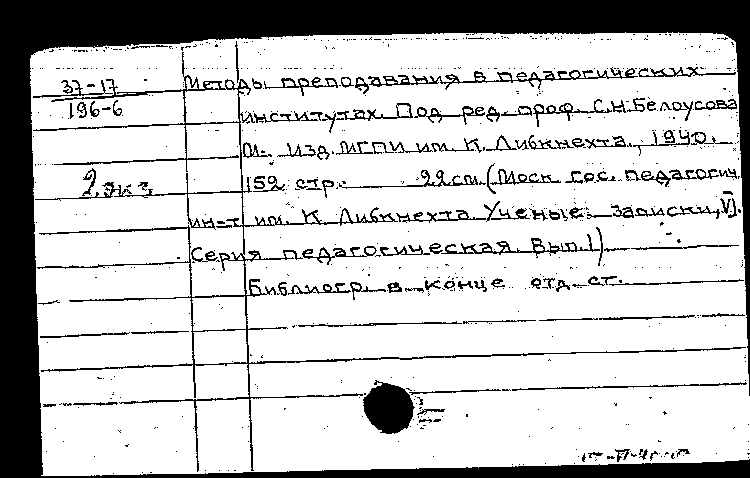 37-17
196-6
2 экз.
Методы преподавания в педагогических
институтах. Под ред. проф. С.Н.Белоусова
М. Изд. МГПИ им. К. Либкнехта, 1940.
152 стр. 22см. (Моск. гос. педагогич.
ин-т им. К. Либкнехта. Ученые записки, VI.
Серия педагогическая. Вып.1)
Библиогр. в конце отд. ст.